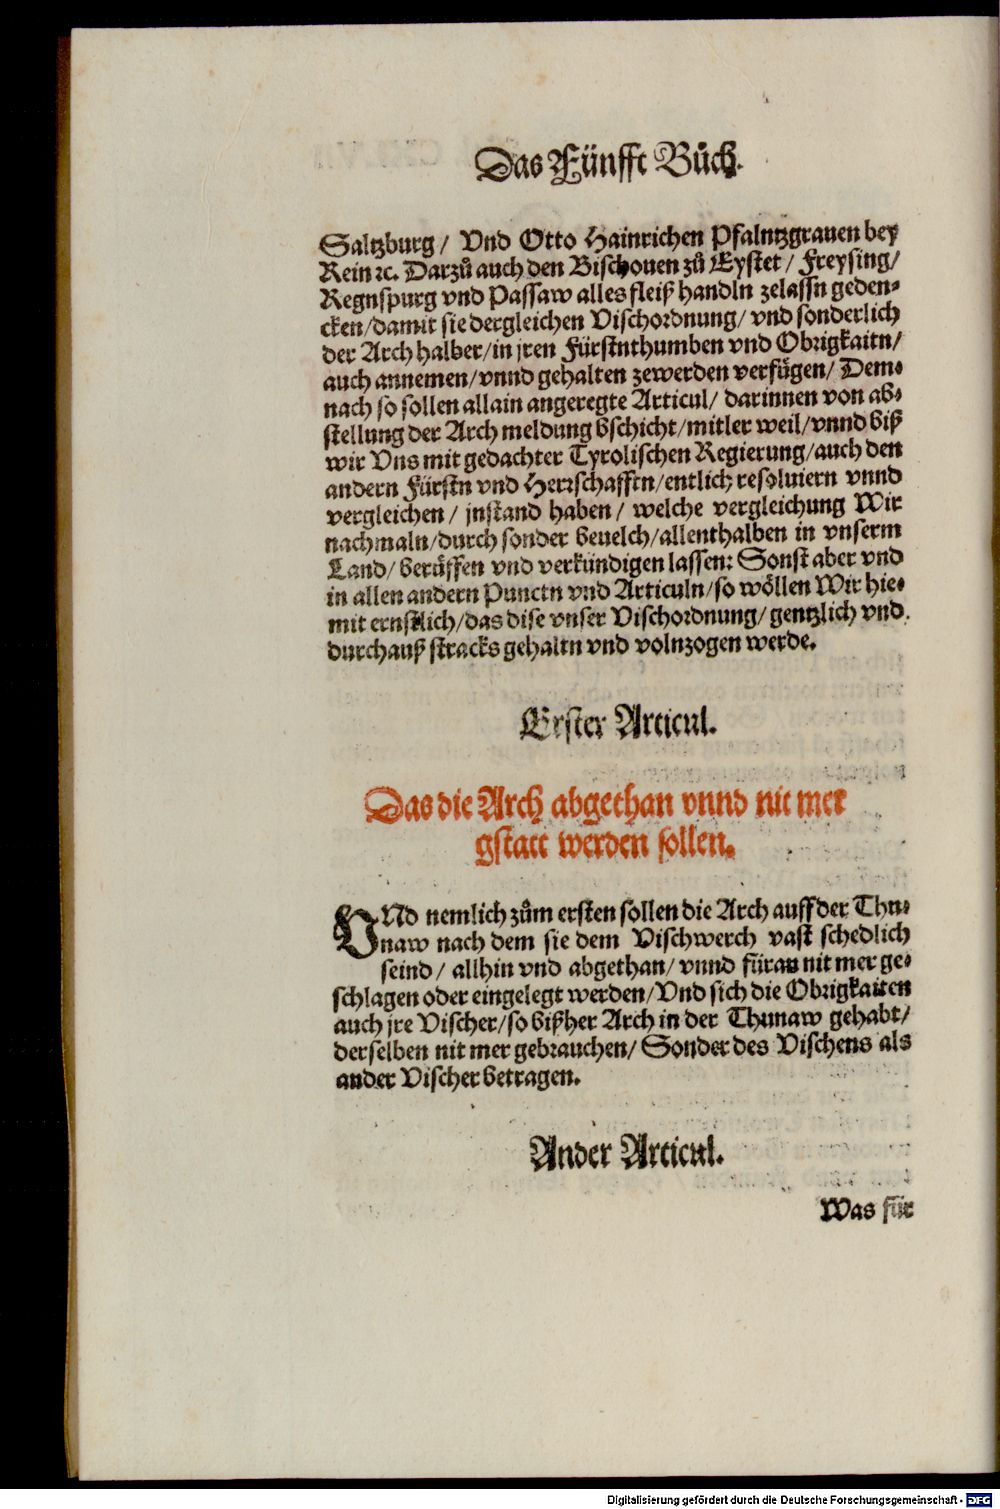 Das Fünfft Bůch.
Saltzburg / Vnd Otto Hainrichen Pfalntzgrauen bey
Rein ꝛc. Darzů auch den Bischouen zů Eystet / Freysing/
Regnspurg vnd Passaw alles fleiß handln zelassn geden-
cken/damit sie dergleichen Vischordnung/ vnd sonderlich
der Arch halber/in jren Fürstnthumben vnd Obrigkaitn/
auch annemen/vnnd gehalten zewerden verfügen/ Dem-
nach so sollen allain angeregte Articul/ darinnen von ab-
stellung der Arch meldung bschicht/mitler weil/vnnd biß
wir Vns mit gedachter Tyrolischen Regierung/auch den
andern Fürstn vnd Herrschafftn/entlich resoluiern vnnd
vergleichen / jnstand haben / welche vergleichung Wir
nachmaln/durch sonder beuelch/allenthalben in vnserm
Land/ berüffen vnd verkündigen lassen: Sonst aber vnd
in allen andern Punctn vnd Articuln/so wöllen Wir hie-
mit ernstlich/das dise vnser Vischordnung/ gentzlich vnd
durchauß stracks gehaltn vnd volnzogen werde.
Erster Articul.
Das die Arch abgethan vnnd nit mer
gstatt werden sollen.
VNd nemlich zům ersten sollen die Arch auff der Thu-
naw nach dem sie dem Vischwerch vast schedlich
seind / allhin vnd abgethan/ vnnd füran nit mer ge-
schlagen oder eingelegt werden/Vnd sich die Obrigkaiten
auch jre Vischer/so bißher Arch in der Thunaw gehabt/
derselben nit mer gebrauchen/ Sonder des Vischens als
ander Vischer betragen.
Ander Articul.
Was für
Digitalisierung gefördert durch die Deutsche Forschungsgemeinschaft - DFG